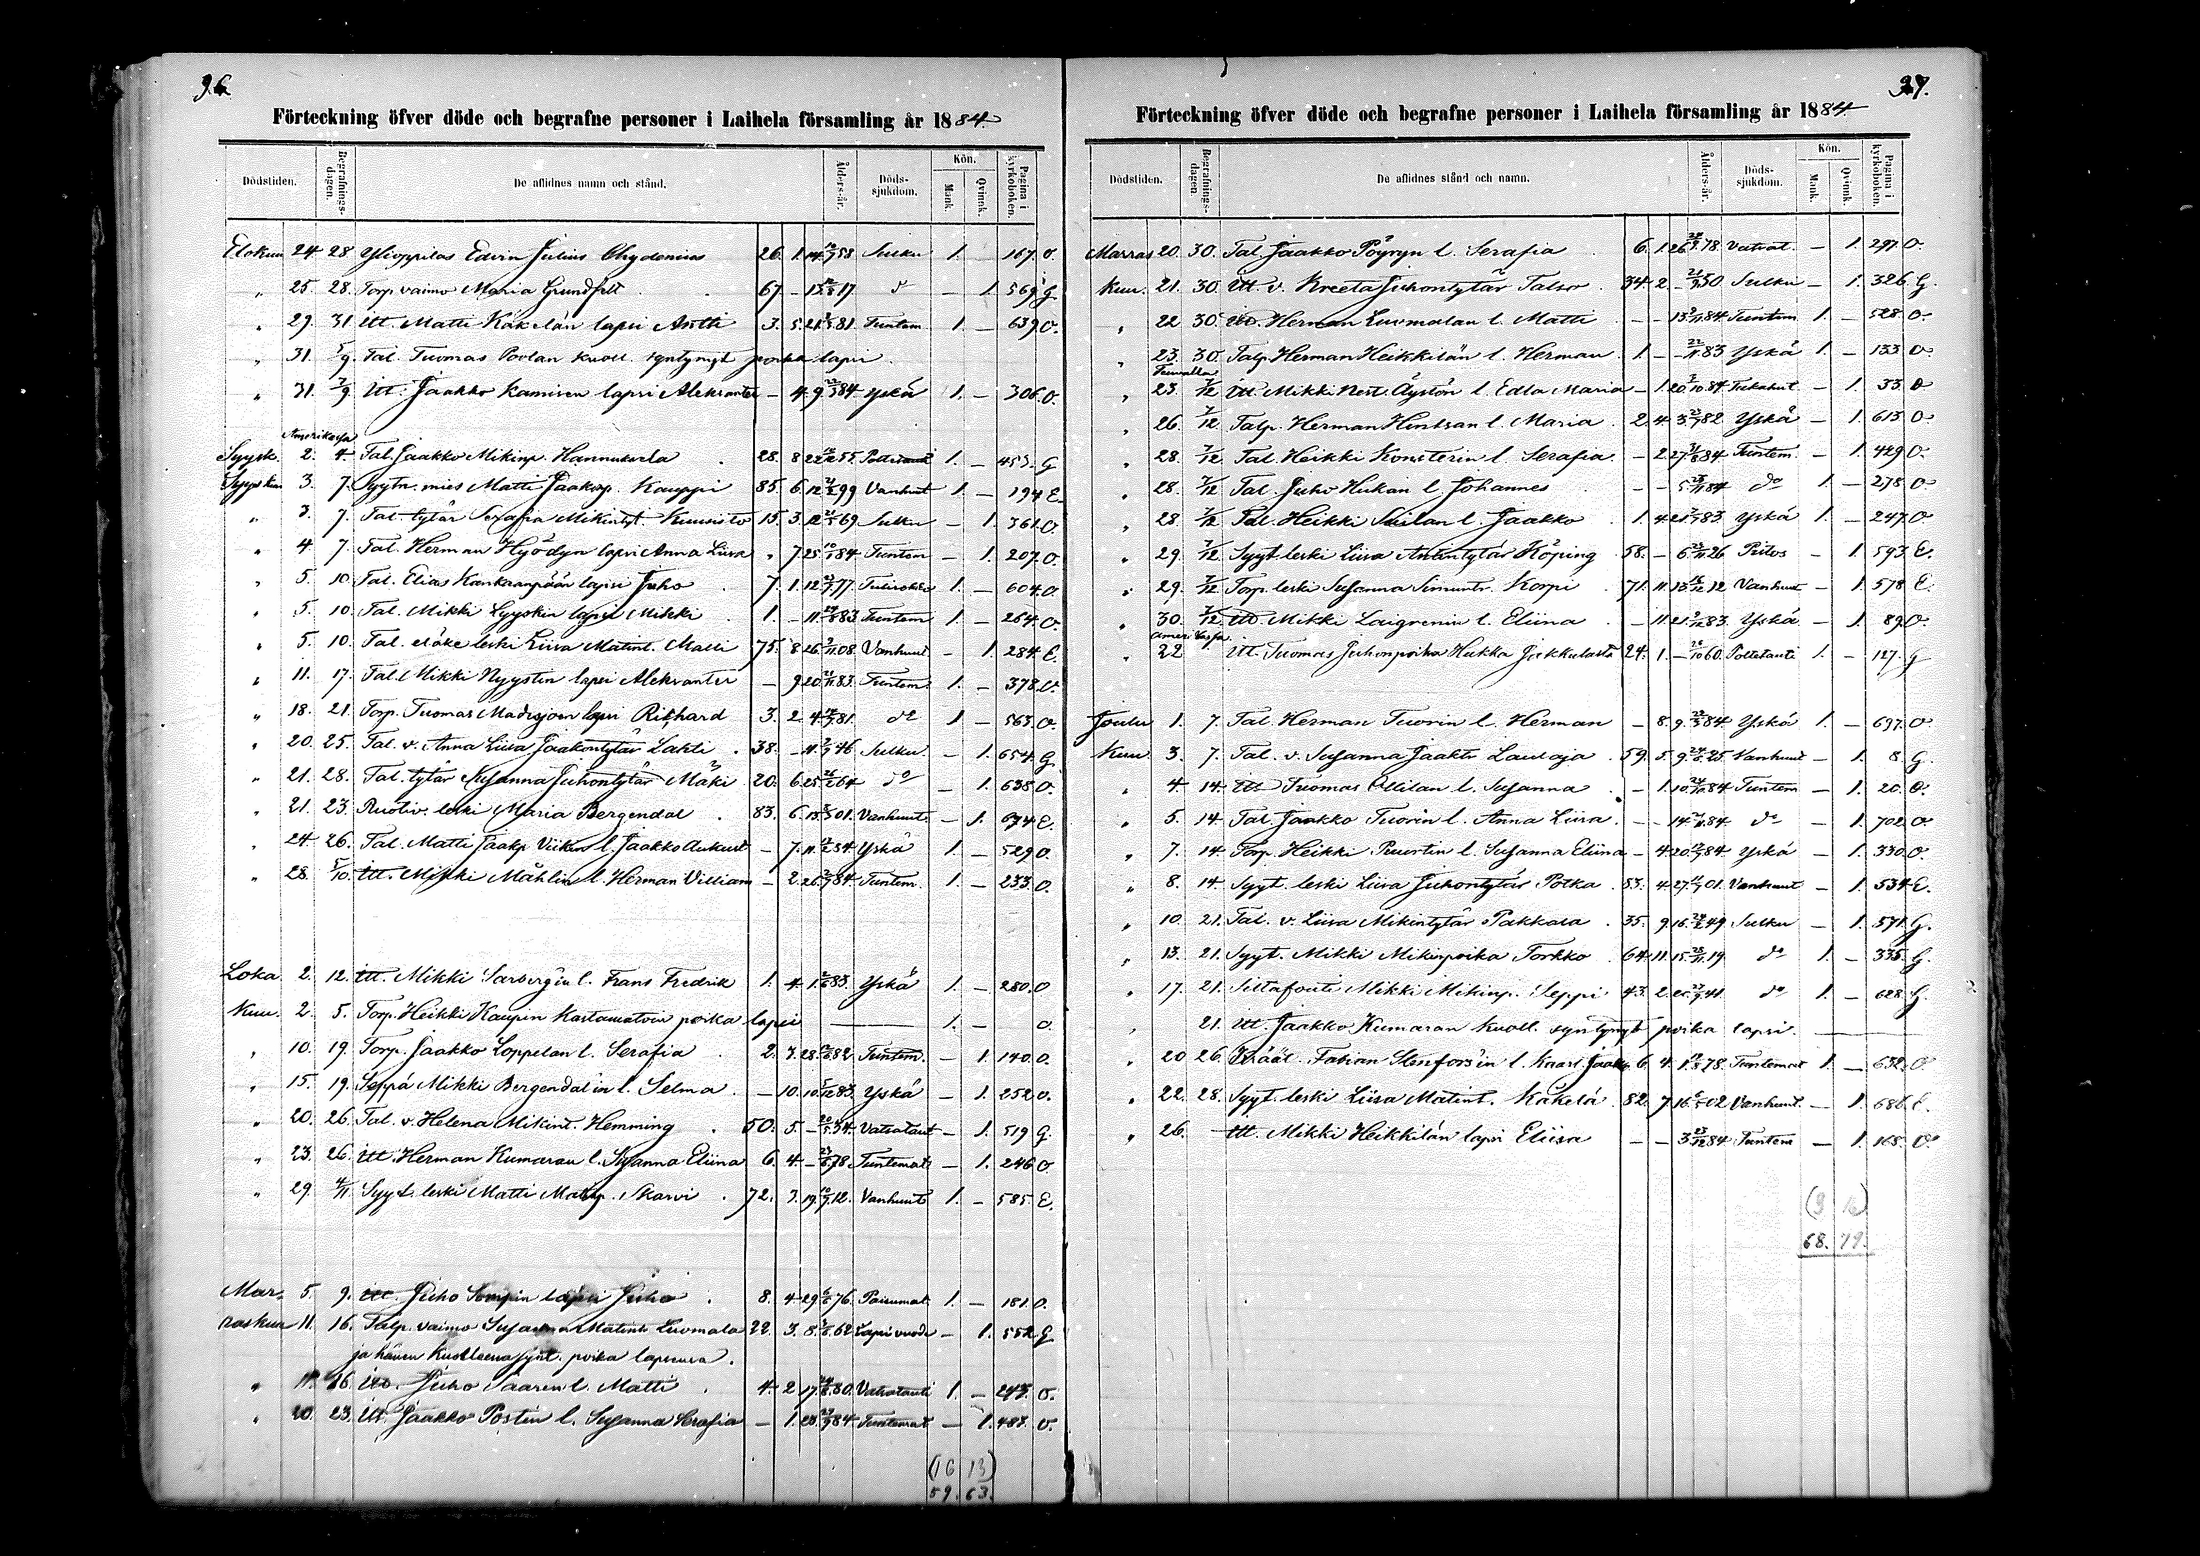 96.
Förteckning öfver döde och begrafne personer i Laihela församling år 1884.
Dödstiden. Begrafningsdagen. De aflidnes namn och stånd. Ålders-år. Dödssjukdom. Kön. Mank. Qvinnk. Pagina i kyrkoboken.
Elokuu 24 28 Ylioppilas Edvin Julius Chydenius 26. 1. 58 Sulku 1. 167. O.
" 25. 28. Torp. vaimo Maria Grundfelt 67 - 17 do - 1. 569 G
" 29. 31 Itt. Matti Käkelän lapsi Antti 3. 5. 21. 81. Tuntem. 1. - 639 O.
" 31. 5/9. Tal. Tuomas Poolan kuoll. syntynyt poika lapsi.
" 31. 7/9. Itt. Jaakko Kamisen lapsi Aleksanter - 4. 9. 84. Yskä 1. - 306. O.
Amerikassa
Syysk. 2. 4. Tal. Jaakko Mikinp. Hannuksela 28. 8 22 55. 1. - 453. G
3. 7. Syytn. mies Matti Jaakop. Kauppi 85. 6. 12 99 Vanhuut 1. - 194 E
" 3. 7. Tal. tytär Serafia Mikintyt. Kuusisto 15. 3. 12 69 Sulku - 1. 361. O.
" 4 7. Tal. Herman Hyödyn lapsi Anna Liisa " 7 25 84 Tuntem - 1. 207. O.
" 5. 10. Tal. Elias Kankaanpään lapsi Juho 7. 1. 12 77 Tulirokko 1. - 604 O.
" 5. 10. Tal. Mikki Lyyskin lapsi Mikki 1. - 11 83 Tuntem 1. - 264. O.
" 5. 10 Tal. eläke leski Liisa Matint. Malli 75. 8 26 08 Vanhuut - 1. 284 E.
" 11. 17. Tal. Mikki Nyystin lapsi Aleksanter - 9 20 83. Tuntem. 1. - 378. O.
" 18. 21. Torp. Tuomas lapsi Rikhard 3. 2 4 81. do 1 - 563. O.
" 20. 25. Tal. v. Anna Liisa Jaakontytär Lahti 38. - 11 46 Sulku - 1. 654 G
" 21. 28. Tal. tytär Susanna Juhontytär Mäki 20. 6. 25 64 do - 1. 638 O.
" 21. 23. Ruotiv. leski Maria Bergendal 83. 6. 13 01. Vanhuut - 1. 674 E.
" 24 26. Tal. Matti Jaakp. Viiken l. Jaakko August - 7. 11. 84 Yskä 1. - 529 O.
" 28. 5/10. Itt. Mikki Måhlin l. Herman Villiam - 2. 26 84. Tuntem. 1. - 233. O.
Loka 2. 12. Itt. Mikki Sarbergin l. Frans Fredrik 1. 4. 1. 83. Yskä 1. - 280. O
Kuu. 2. 5. Torp. Heikki Kaupin kastamatoin poika lapsi 1. - O.
" 10. 19. Torp. Jaakko Loppelan l. Serafia 2. 3. 28. 82 Tuntem. - 1. 140. O.
" 15. 19. Seppä Mikki Bergendalin l. Selma - 10. 10 83. Yskä - 1. 252 O.
" 20. 26. Tal. v. Helena Mikint. Hemming 50. 5. - 34. Vatsataut - 1. 519 G.
" 23. 26. Itt. Herman Kumaran l. Susanna Eliina 6. 4. - 78 Tuntemat - 1. 246 O.
" 29. 4/11. Syyt. leski Matti Matp. Skarvi 72. 3. 19 12. Vanhuut 1. - 585. E.
Mar- 5. 9. Itt. Juho lapsi Juho 8. 4 29 76. Paisumat 1. - 181. O.
raskuu 11. 16. Talp. vaimo Susanna Matint. Luomala 22. 3. 8. 62 Lapsivuode - 1. 552 G
ja hänen kuolleena synt. poika lapsensa.
" 11. 16. Itt. Juho Saaren l. Matti 4. 2 17. 80. Vatsatauti 1. - 243. O.
" 20. 23. Itt. Jaakko Postin l. Susanna Serafia - 1. 28. 84 Tuntemat - 1. 483. O.
(16 13)
59. 63.
37.
Förteckning öfver döde och begrafne personer i Laihela församling år 1884.
Dödstiden. Begrafningsdagen. De aflidnes stånd och namn. Ålders-år. Dödssjukdom. Kön. Mank. Qvinnk. Pagina i kyrkoboken.
Marras 20. 30. Tal. Jaakko Pöyryn l. Serafia 6. 1. 26 78. Vatsat. - 1. 297. O.
Kuu. 21. 30 Itt. v. Kreeta Juhontytär Talso 34. 2. - 50. Sulku - 1. 326. G.
" 22 30. Itt. Herman Luomalan l. Matti - - 13 84 Tuntem 1. - 528 O.
" 23. 30. Talp. Herman Heikkilän l. Herman 1. - - 83 Yskä 1. - 133 O.
" 23. 7/12 Itt. Mikki Nest. Äystön l. Edla Maria - 1. 20 84 - 1. 33. O
" 26. 7/12 Talp. Herman Hintsan l. Maria 2. 4 3 82 Yskä - 1. 613 O
" 28. 7/12 Tal. Heikki Konsterin l. Serafia - 2 27 84 Tuntem. - 1. 429 O.
" 28. 7/12 Tal. Juho Hukan l. Johannes - - 5 84 do 1 - 278 O.
" 28. 7/12 Tal. Heikki l. Jaakko 1. 4 21 83. Yskä 1. - 247. O
" 29. 7/12 Syyt. leski Liisa Antintytär Köping 58. - 6 26 - 1. 593. E.
" 29. 7/12 Torp. leski Susanna Simunt. Korpi 71. 11. 13 12 Vanhuut - 1. 578 E.
" 30. 7/12 Itt. Mikki Laigrenin l. Eliina - 11. 21 83. Yskä - 1. 89. O.
Amerikassa
" 22 Itt. Tuomas Juhonpoika Hukka Jakkulasta 24. 1. - 60. 1. - 127. G
Joulu 1. 7. Tal. Herman Tuorin l. Herman - 8. 9. 84. Yskä 1. - 697. O.
Kuu. 3. 7. Tal. v. Susanna Jaakt. Laulaja 59. 5. 9. 25 Vanhuut - 1. 8. G.
" 4 14. Itt. Tuomas Ollilan l. Susanna - 1. 10. 84 Tuntem - 1. 20. O.
" 5. 14. Tal. Jaakko Tuorin l. Anna Liisa - - 14 84. do - 1. 702 O.
" 7. 14 Torp. Heikki l. Susanna Eliina - 4. 20. 84. Yskä - 1. 330. O.
" 8. 14. Syyt. leski Liisa Juhontytär Potka 83. 4 27 01. Vanhuut - 1. 534 E.
" 10. 21. Tal. v. Liisa Mikintytär Pakkala 35. 9. 16. 49 Sulku - 1. 571. G.
" 13. 21. Syyt. Mikki Mikinpoika Torkko 64. 11. 15. 19. do 1. - 335. G.
" 17. 21. Siltafouti Mikki Mikinp. Seppi 43. 2. 25 41. do 1. - 628. G.
" 21. Itt. Jaakko Kumaran kuoll. syntynyt poika lapsi.
" 20 26. Fabian Stenforsin l. Kaarl Jaakk. 6. 4. 1. 78. Tuntemat 1. - 632. O
" 22. 28. Syyt. leski Liisa Matint. Käkelä 82. 7. 16 02 Vanhuut. - 1. 686. E.
" 26. - Itt. Mikki Heikkilän lapsi Eliisa - - 3 84 Tuntem - 1. 165. O.
(9 16)
68. 79.